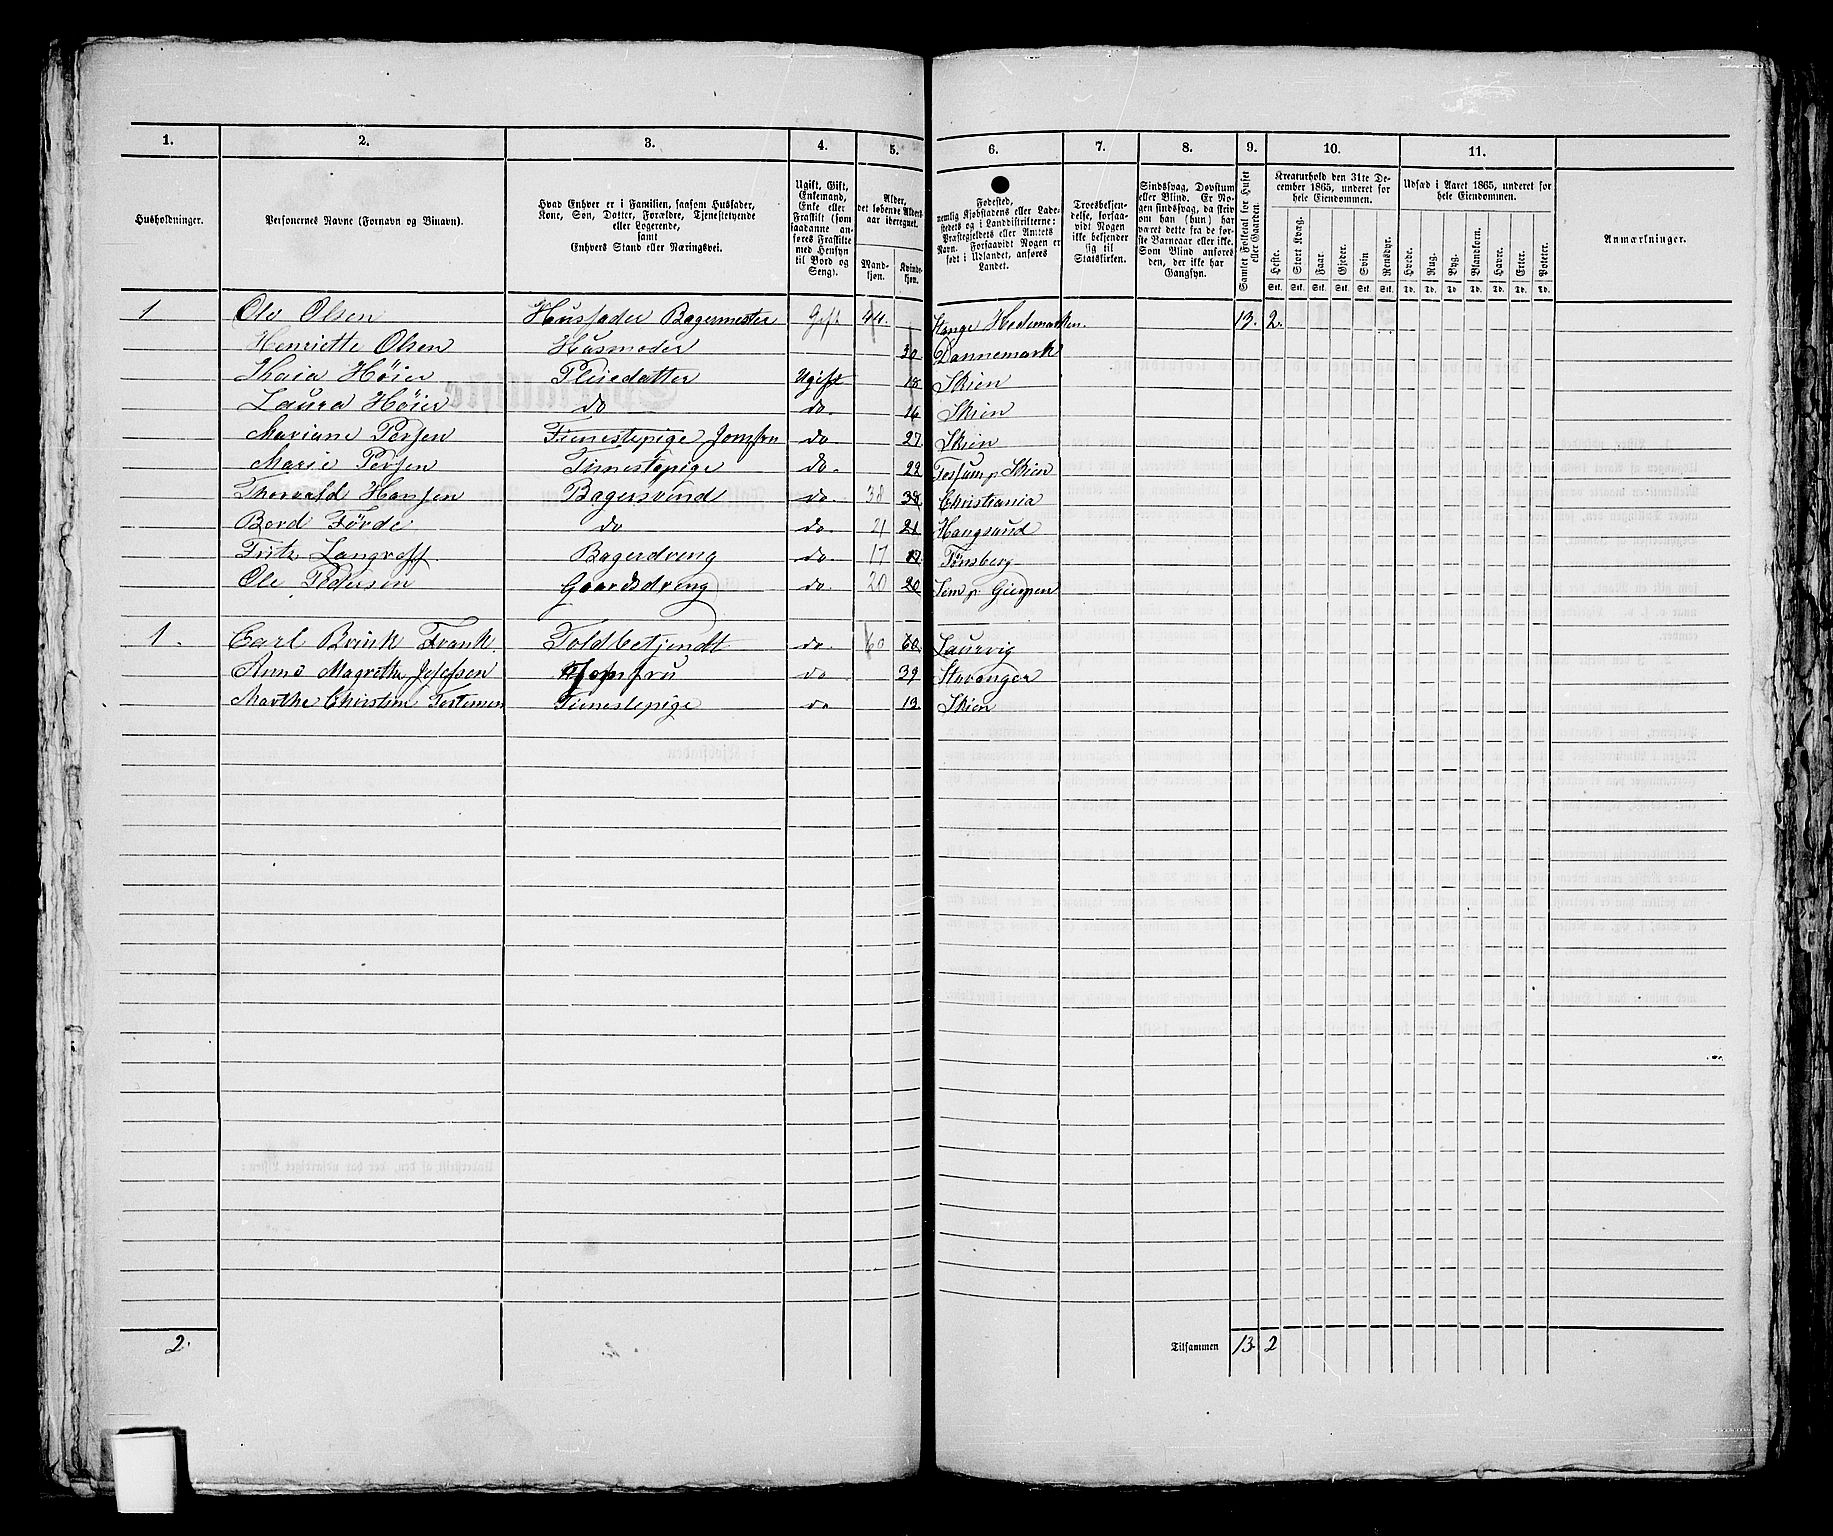 1. 2. 3. 4. 5. 6. 7. 8. 9. 10. 11.
Husholdninger.
Personernes Navne (Fornavn og Binavn).
Hvad Enhver er i Familien, saasom Husfader,
Kone, Søn, Datter, Forældre, Tjenestetyende
eller Logerende,
samt
Enhvers Stand eller Næringsvei.
Ugift, Gift,
Enkemand,
Enke eller
Fraskilt (som
saadanne an-
føres Fraskilte
med Hensyn
til Bord og
Seng).
Alder,
det løbende Alders-
aar iberegnet.
Mand-
kjøn.
Kvinde-
kjøn.
Fødested,
nemlig Kjøbstadens eller Lade-
stedets og i Landdistrikterne:
Præstegjeldets eller Amtets
Navn. Forsaavidt Nogen er
født i Udlandet, anføres
Landet.
Troesbekjen-
delse, forsaa-
vidt Nogen
ikke bekjender
sig til
Statskirken.
Sindssvag, Døvstum
eller Blind. Er No-
gen sindssvag, da skriv
om han (hun) har
været dette fra de før-
ste Barneaar eller ikke.
Som Blind anføres
den, der ikke har
Gangsyn.
Samlet Folketal for Huset
eller Gaarden.
Kreaturhold den 31te De-
cember 1865, underet for
hele Eiendommen.
Heste. Stort Kvæg. Faar. Gjeder. Svin Rensdyr.
Stk. Stk. Stk. Stk. Stk. Stk.
Udsæd i Aaret 1865, underet for
hele Eiendommen.
Hvede. Rug. Byg. Blandkorn. Havre. Erter. Poteter.
Td. Td. Td. Td. Td. Td. Td.
Anmærkninger.
1 Ole Olsen Husfader Bagermester Gift 44. Stange Hedemarken. 13. 2.
Henriette Olsen Husmoder 30. Dannemark
Thaia Høier Pleiedatter Ugift 18 Skien
Laura Høier do do. 16 Skien
Mariane Persen Tienestepige Jomfru do 27. Skien
Marie Persen Tienestepige do. 22 Fossum p. Skien
Thorvald Hansen Bagersvend do 38 38 Christiania
Bord Förde do do. 21 21 Haugsund
Fritz Bagerdreng do 17 17 Tønsberg
Ole Pedersen Gaardsdreng do. 20 20 Sem p. Gierpen
1. Carl Brink Frank. Toldbetjendt do. 60 60 Laurvig
Anne Magrethe Josefsen Jomfru do 39 Stavanger
Marthe Christine Tienestepige do 19. Skien
2. Tilsammen 13 2